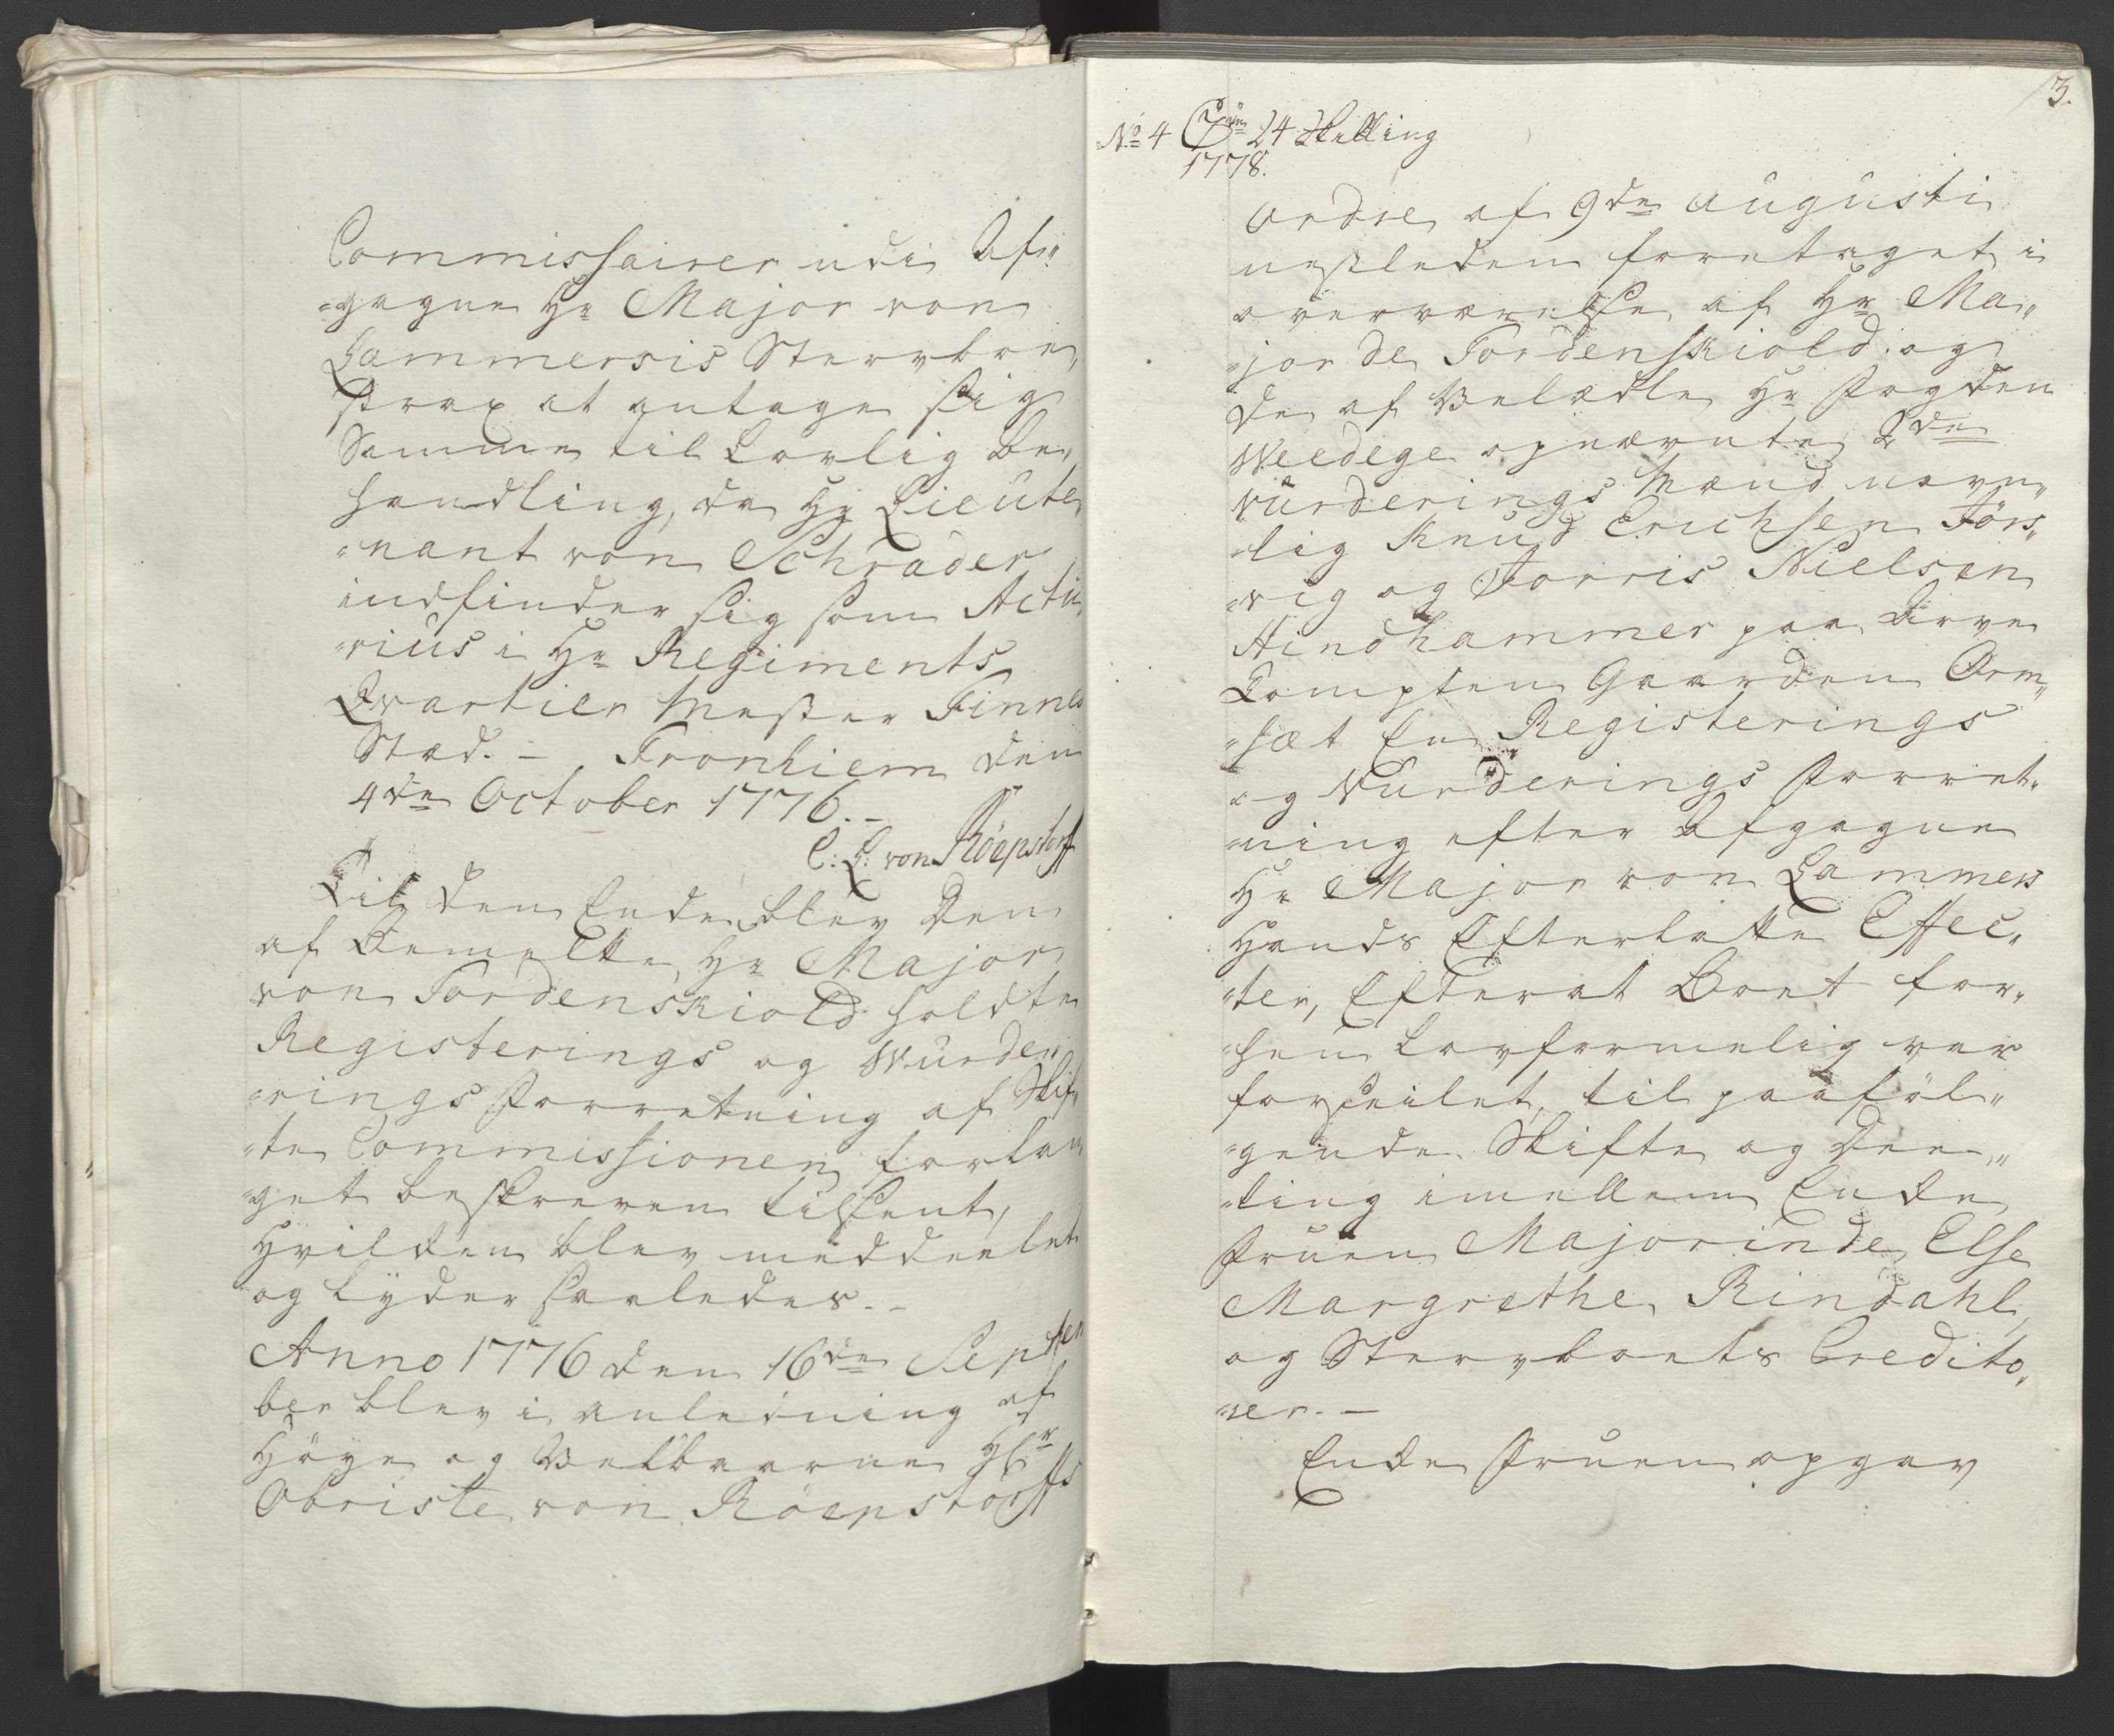 Commissairer udi Af„
„gagne Hr Major von
Lammersis Stervboe,
strax at antage sig
Samme til Lovlig Be„
handling, da Hr Lieute„
„nant von Schrader
indfinder sig som Actu„
„rius i Hr Regiments
Qvartier Mester Finne
Stæd. – Tronhiem den
4de October 1776. –
C: L: von Röepstorff
Til den Ende blev den
af Bemelte Hr Major
von Tordenskiold holdte
Registerings og Wurde„
„rings Forretning af Skif„
„te Commissionen forlan„
„get beskreven tilsent,
Hvilken blev meddeelet
og lyder saaledes. –
Anno 1776 den 16de Septem
ber blev i anledning af
Høye og Velbaarne Hr
Obriste von Röepstorffs
3.
No 4 24 Skilling
1778.
Ordre af 9de Augusti
nestleden foretaget i
overværelse af Hr Ma„
„jor de Tordenskiold og
de af Velædle Hr Fogden
Weedege opnævnte 2de
Vurderings Mænd navn„
„lig Knud Erichsen Förs„
„vig og Jorris Nielsen
Hindhammer paa Arve
Lompten Gaarden Orm„
„sæt En Registerings
og Vurderings Forret„
„ning efter Afgagne
Hr Major von Lammers
Hands Efterlatte Effec„
„ter, Efterat Boet for„
„hen Lovformelig var
forseilet, til paaföl„
„gende Skifte og Dee„
„ling imellem Enke
Fruen Majorinde Else
Margrethe Rindahl
og Sterboets Credito„
„rer. –
Enke Fruen opgav